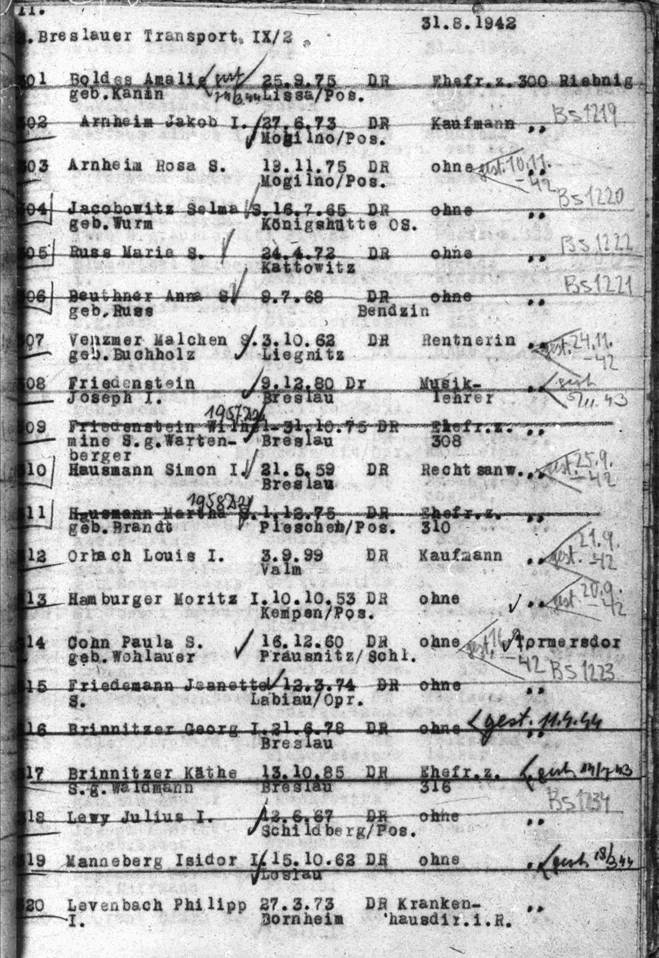 11.
Breslauer Transport IX/2 31.8.1942
301 Boldes Amalie gest 25.9.75 DR Ehefr.z.300 Riebnig
geb.Kanin Lissa/Pos.
302 Arnheim Jakob I. 27.6.73 DR Kaufmann ,, Bs1219
Mogilno/Pos.
303 Arnheim Rosa S. 19.11.75 DR ohne gest.10.11.42 ,,
Mogilno/Pos.
304 Jacobowitz Selma S. 16.7.65 DR ohne ,, Bs1220
geb.Wurm Königshütte OS.
305 Russ Marie S. 24.4.72 DR ohne ,, Bs1222
Kattowitz
306 Beuthner Anna S. 9.7.68 DR ohne ,, Bs1221
geb.Russ Bendzin
307 Venzmer Malchen S. 3.10.62 DR Rentnerin ,, gest.24.11.42
geb.Buchholz Liegnitz
308 Friedenstein 9.12.80 Dr Musik- ,, gest
Joseph I. Breslau lehrer
309 Friedenstein Wilhel- 31.10.75 DR Ehefr.z. ,,
mine S.g.Warten- Breslau 308
berger
310 Hausmann Simon I. 21.5.59 DR Rechtsanw. ,, gest.25.9.42
Breslau
311 Hausmann Martha S. 1.12.75 DR Ehefr.z. ,,
geb.Brandt Pleschen/Pos. 310
312 Orbach Louis I. 3.9.99 DR Kaufmann ,, gest.21.9.42
Valm
313 Hamburger Moritz I. 10.10.53 DR ohne ,, gest.20.9.42
Kempen/Pos.
314 Cohn Paula S. 16.12.60 DR ohne Tormersdor
geb.Wohlauer Prausnitz/Schl.
315 Friedemann Jeanette 12.3.74 DR ohne ,, Bs1223
S. Labiau/Opr.
316 Brinnitzer Georg I. 21.6.78 DR ohne ,, gest. 11.4.44
Breslau
317 Brinnitzer Käthe 13.10.85 DR Ehefr.z. ,, gest
S.g.Waldmann Breslau 316
318 Lewy Julius I. 12.6.67 DR ohne ,, Bs1234
Schildberg/Pos.
319 Manneberg Isidor I. 15.10.62 DR ohne ,, gest 18/3.44
Loslau
320 Levenbach Philipp 27.3.73 DR Kranken- ,,
I. Bornheim hausdir.i.R.